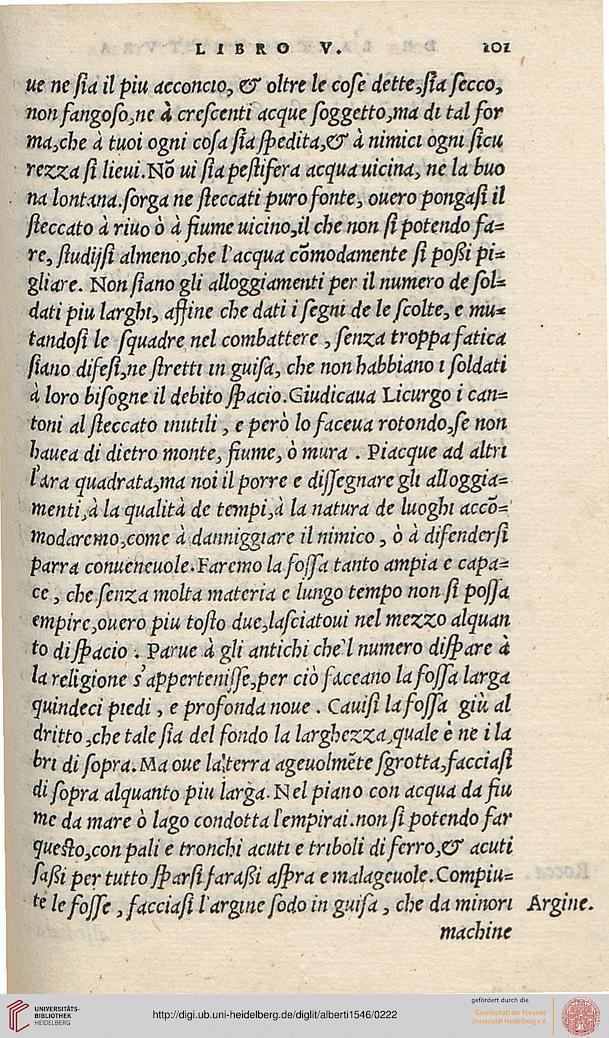 LIBRO V. 101
ue ne ſia il piu acconcio, & oltre le coſe dette,ſia ſecco,
non fangoſo,ne à creſcenti acque ſoggetto,ma di tal for
ma,che à tuoi ogni coſa ſia ſpedita,& à nimici ogni ſicu
rezza ſi lieui.Nō ui ſia peſtifera acqua uicina, ne la buo
na lontana.ſorga ne ſteccati puro fonte, ouero pongaſi il
ſteccato à riuo ò à fiume uicino,il che non ſi potendo fa=
re, ſtudijſi almeno,che l'acqua cōmodamente ſi poßi pi=
gliare. Non ſiano gli alloggiamenti per il numero de ſol=
dati piu larghi, affine che dati i ſegni de le ſcolte, e mu=
tandoſi le ſquadre nel combattere , ſenza troppa fatica
ſiano difeſi,ne ſtretti in guiſa, che non habbiano i ſoldati
à loro biſogne il debito ſpacio.Giudicaua Licurgo i can=
toni al ſteccato inutili , e però lo faceua rotondo,ſe non
hauea di dietro monte, fiume, ò mura . Piacque ad altri
l'ara quadrata,ma noi il porre e diſſegnare gli alloggia=
menti,à la qualità de tempi,à la natura de luoghi accō=
modaremo,come à danniggiare il nimico , ò à difenderſi
parra conueneuole.Faremo la foſſa tanto ampia e capa=
ce , che ſenza molta materia e lungo tempo non ſi poſſa
empire,ouero piu toſto due,laſciatoui nel mezzo alquan
to di ſpacio . Parue à gli antichi che'l numero diſpare à
la religione s'apperteniſſe,per ciò faceano la foſſa larga
quindeci piedi , e profonda noue . Cauiſi la foſſa giù al
dritto ,che tale ſia del fondo la larghezza,quale è ne i la
bri di ſopra. Ma oue la terra ageuolmēte ſgrotta,facciaſi
di ſopra alquanto piu larga. Nel piano con acqua da fiu
me da mare ò lago condotta l'empirai.non ſi potendo far
queſto,con pali e tronchi acuti e triboli di ferro,& acuti
ſaßi per tutto ſparſi faraßi aſpra e malageuole.Compiu=
te le foſſe , facciaſi l'argine ſodo in guiſa , che da minori Argine.
machine
UNIVERSITÄTS-
BIBLIOTHEK
HEIDELBERG
http://digi.ub.uni-heidelberg.de/diglit/alberti1546/0222
gefördert durch die
Gesellschaft der Freunde
Universität Heidelberg e.V.